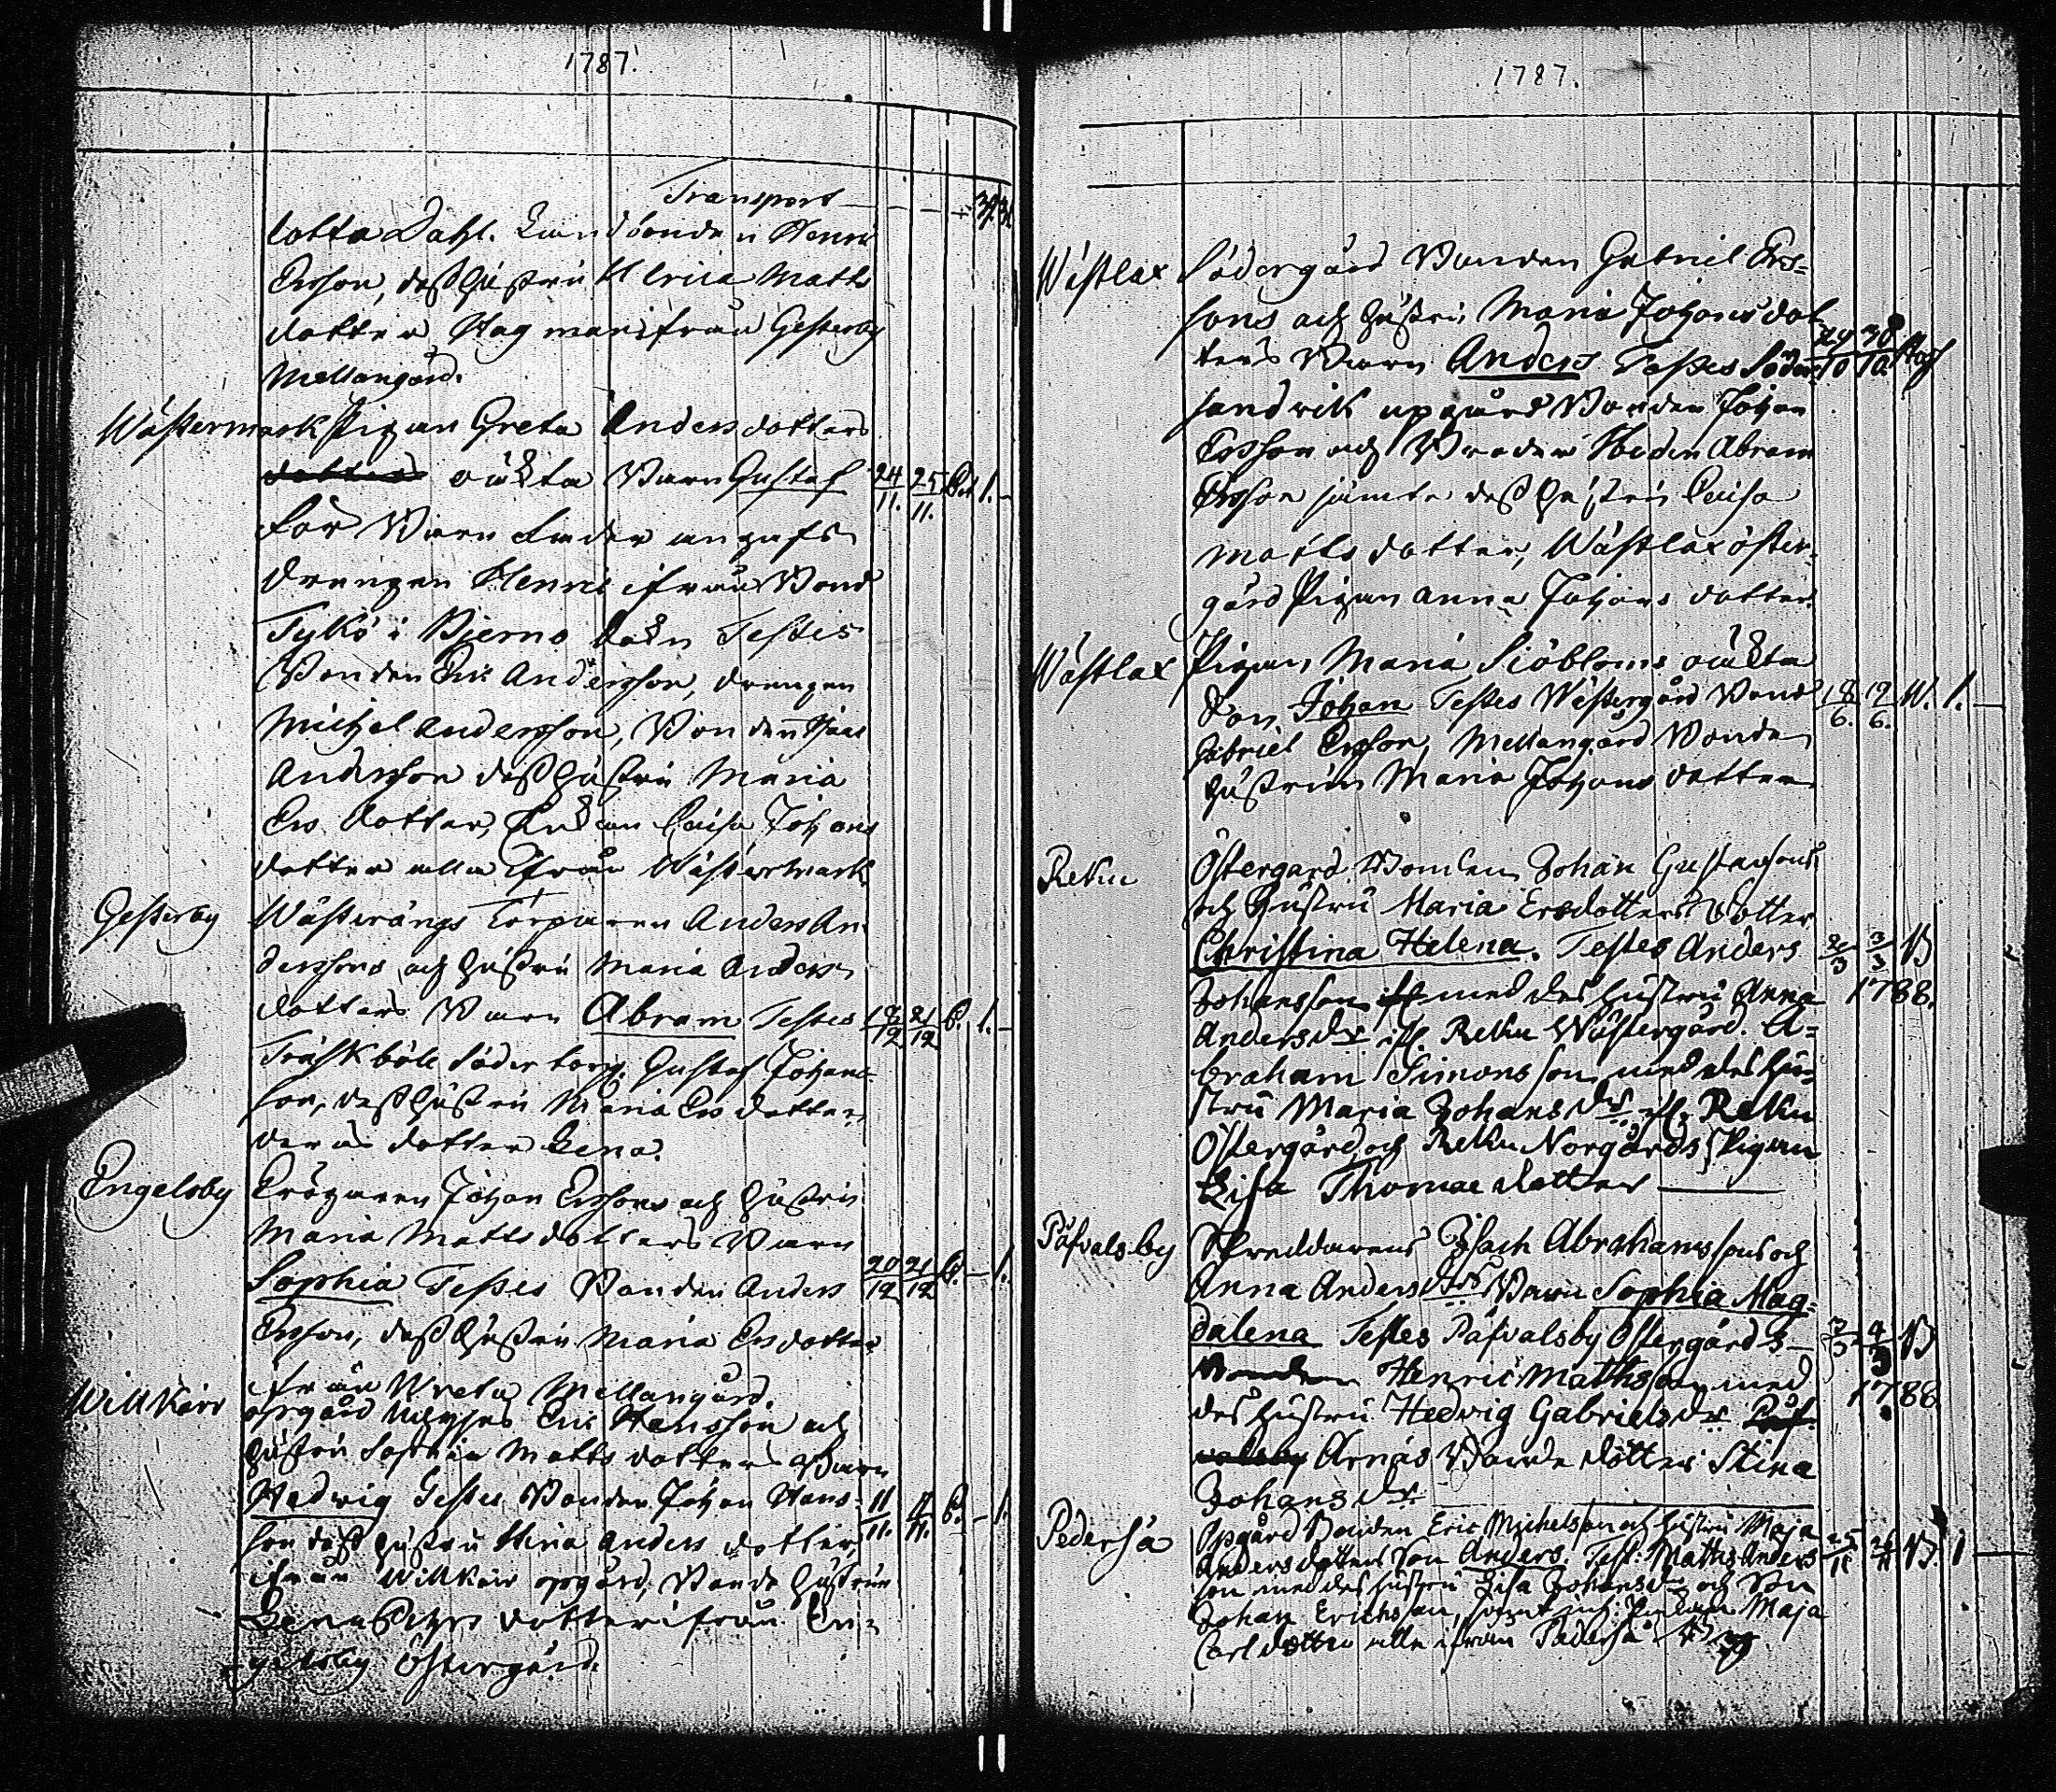 1787.
Transport — — — 39. 36
lotta Dahl. Landbonden Henric
Ersson, dess hustru Ulrica Matts
dotter Hagman ifrån Gesterby
Mellangård.
Wästermark Pigan Greta Anders dotters
oäkta Barn Gustaf 24/11. 25/11. 1. –
för Barn fader angafs
Drengen Henric ifrån Bond
Tykö i Bjerno Sokn Testes
Bonden Eric Andersson, drengen
Michel Andersson, Bonden
Andersson dess hustru Maria
Ers dotter, Enkan Caisa Johans
dotter alla ifrån Wästermark
Gesterby Wästerängs Torparen Anders An
derssons och hustru Maria Anders
dotters Barn Abram Testes 18/12 21/12 1. –
Träskböle Södertorp. Gustaf Johans
son, dess hustru Maria Ers dotter,
deras dotter Lena.
Engelsby Cröparen Johan Erssons och hustru
Maria Matts dotters Barn
Sophia Testes Bonden Anders 20/12 21/12 – 1.
Ersson, dess hustru Maria Ers dotter
ifrån Wreta Mellangård.
Willkärr opgård Eric Hansson och
hustru Sophia Matts dotters Barn
Hedwig Testes Bonden Johan Hans- 11/11. 11/11. – 1.
son dess hustru Stina Anders dotter
ifrån Willkärr opgård, Bonde hustrun
Lena dotter ifrån En-
gelsby Östergård.
1787.
Wästlax Södergård Bonden Gabriel Ers=
sons och hustru Maria Johans dot
ters Barn Anders Testes Söder 29/10 30/10
sundwik upgård Bonden Johan
Ersson och Broder Abram
Ersson jämte dess hustru Caisa
Matts dotter, Wästlax öster=
gård Pigan Anna Johans dotter.
Wästlax Pigan Maria Siöbloms oäkta
Son Johan Testes Westergård Bond 18/6. 19/6. W. 1. –
Gabriel Ersson, Mellangård Bonde
hustrun Maria Johans dotter
Rekn Östergård Bonden Johan Gustafsons
och Hustru Maria Ersdotters Dotter
Christina Helena. Testes Anders 2/3 3/3 B
Johansson med des hustru Anna 1788.
Anders dr Wästergård. A=
braham Simonsson med des hu=
stru Maria Johans dr
Östergård och Norgårds Pigan
Lisa Thomae dotter —
Påfvalsby Skreddarens Isach Abrahamssons och
Anna Anders drs Barn Sophia Mag=
dalena Testes Påfvalsby Östergårds 3/3 4/3 B
Bonden Henric Mathsson med 1788.
des hustru Hedvig Gabriels dr
Årnäs Bonde dotter Stina
Johans dr
Pederså Opgård Bonden Eric Michelsson och hustru Maja
Anders dotters Son Anders. Test: Matths Anders 25/11 26/11 B. 1 —
son med des hustru Lisa Johans dr och Son
Johan Erichsson, Maja
Carls dotter alla ifrån Pederså